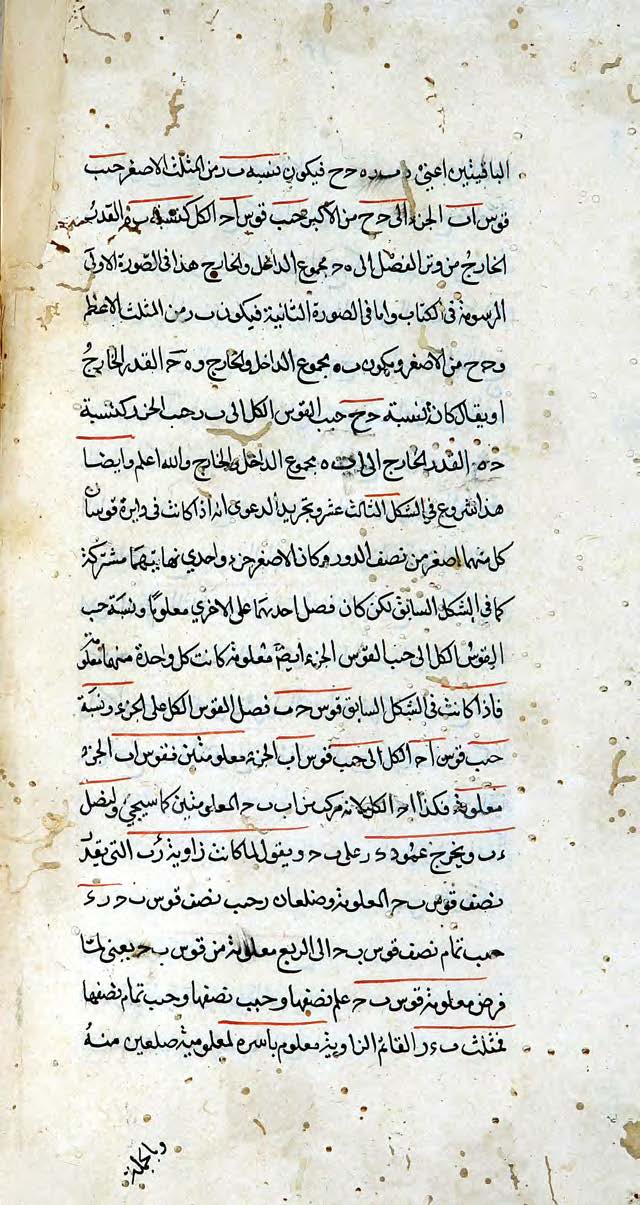 الباقيتين اعنى ب ر ه ح ح فيكون نسبة ب ر من المثلث الاصغر جيب
قوس ا ب الجزء الى ح ح من الاكبر جيب قوس ا ح الكل كنسبة ب ه القدر
الخارج من وتر الفصل الى ه ح مجموع الداخل والخارج هذا فى الصورة الاولى
المرسومة فى الكتاب واما فى الصورة الثانية فيكون ب ر من المثلث الاعظم
و ح ح من الاصغر ويكون ب ه مجموع الداخل والخارج و ه ح القدر الخارج
او يقال كان نسبة ح ح جيب القوس الكل الى ب ر جيب الجزء كنسبة
ح ه القدر الخارج الى ب ه مجموع الداخل والخارج والله اعلم وايضا
هذا شروع فى الشكل الثالث عشر وتجريد الدعوى انه اذا كانت فى دايرة قوسان
كل منهما اصغر من نصف الدور وكان الاصغر جزء واحدي نهايتيهما مشتركة
كما فى الشكل السابق لكن كان فصل احديهما على الاخري معلوما ونسبة جيب
القوس الكل الى جيب القوس الجزء ايضا معلومة كانت كل واحدة منهما معلومة
فاذا كانت فى الشكل السابق قوس ح ب فصل القوس الكل على الجزء ونسبة
جيب قوس ا ح الكل الى جيب قوس ا ب الجزء معلومتين فقوس ا ب الجزء
معلومة فكذا ا ح الكل لانه مركب من ا ب ب ح المعلومتين كما سيجئ وليفصل
ء ب ويخرج عمود ء ر على ب ح ويقول لما كانت زاوية ر ء ب التى بقدر
نصف قوس ب ح المعلومة وضلعان ر ب جيب نصف قوس ب ح ر ء
جيب تمام نصف قوس ب ح الى الربع معلومة من قوس ب ح يعنى لما
فرض معلومة قوس ب ح علم نصفها وجيب نصفها وجيب تمام نصفها
فمثلث ب ء ر القائم الزاوية معلوم باسره لمعلومية ضلعين منه
وبالجملة